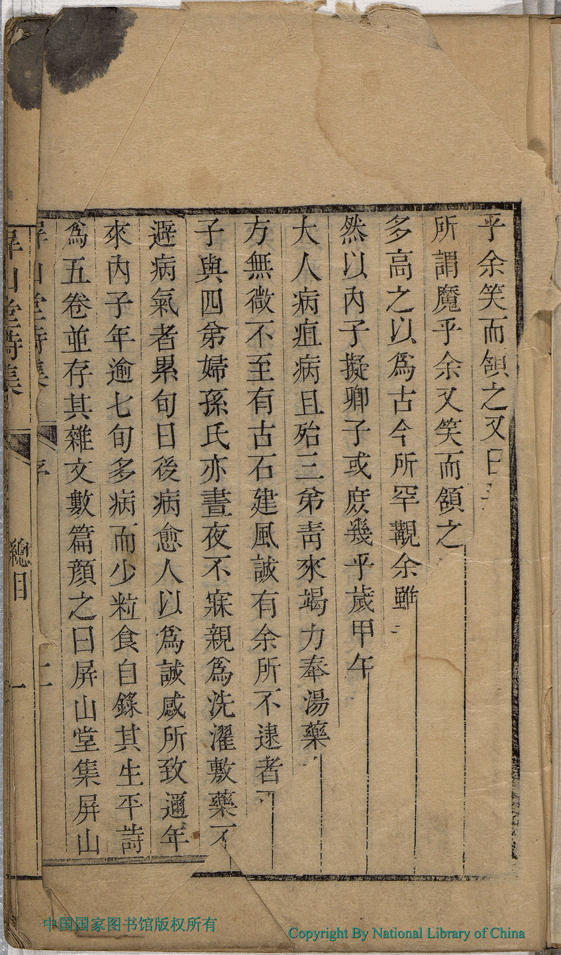 乎余笑而頷之又曰
所謂魔乎余又笑而頷之
多高之以為古今所罕覯余雖
然以內子擬卿子或庶幾乎歲甲午
大人病疽病且殆三弟青來竭力奉湯藥
方無微不至有古石建風誠有余所不逮者
子與四弟婦孫氏亦晝夜不寐親為洗濯敷藥不
避病氣者累旬日後病愈人以為誠感所致邇年
來內子年逾七旬多病而少粒食自錄其生平詩
為五卷並存其雜文數篇顏之曰屏山堂集屏山
屏山堂詩集 序 二
屏山堂詩集 總目 一
中国国家图书馆版权所有
Copyright By National Library of China